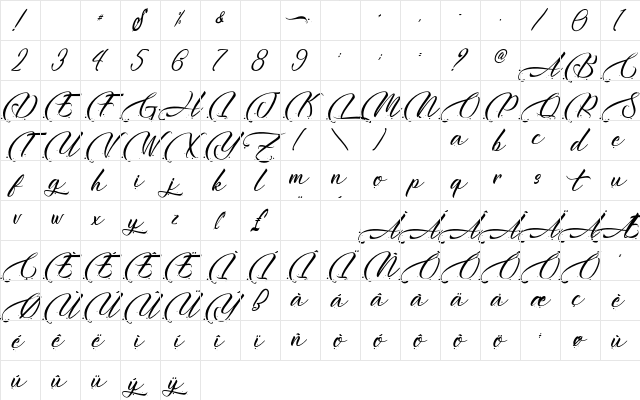 ! " $ % & ~ ' , - . / 0 1
2 3 4 5 6 7 8 9 : ; = ? @ A B C
D E F G H I J K L M N O P Q R S
T U V W X Y Z [ \ ] a b c d e
f g h i j k l m n o p q r s t u
v w x y z £ À Á Â Ã Ä Å Æ
Ç È É Ê Ë Ì Í Î Ï Ñ Ò Ó Ô Õ Ö
Ø Ù Ú Û Ü Ý ß à á â ã ä å æ ç è
é ê ë ì í î ï ñ ò ó ô õ ö ÷ ø ù
ú û ü ý ÿ